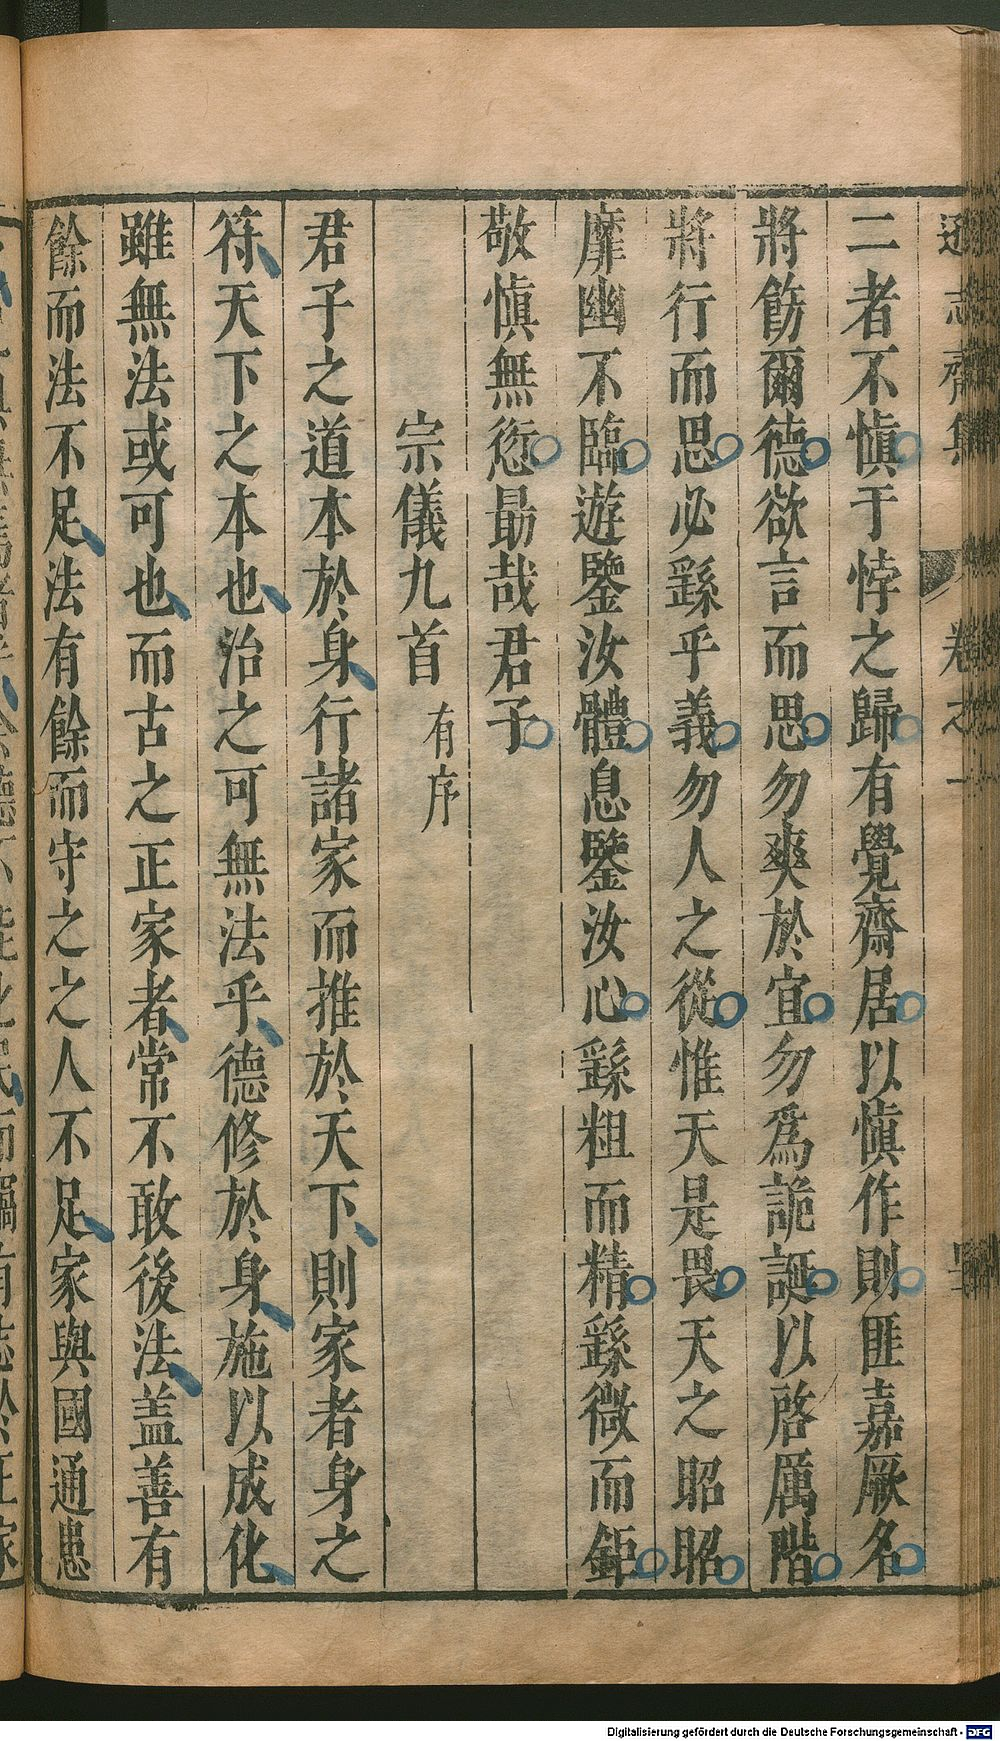 二者不愼于悖之歸有覺齋居以愼作則匪嘉厥名
將飭爾德欲言而思勿爽於宜勿爲詭誕以啓厲階
將行而思必繇乎義勿人之從惟天是畏天之昭昭
靡幽不臨遊鑒汝體息鑒汝心繇粗而精繇微而鉅
敬愼無愆勗哉君子
宗儀九首 有序
君子之道本於身行諸家而推於天下則家者身之
符天下之本也治之可無法乎德修於身施以成化
雖無法或可也而古之正家者常不敢後法盖善有
餘而法不足法有餘而守之之人不足家與國通患
遜志齋集 卷之一
Digitalisierung gefördert durch die Deutsche Forschungsgemeinschaft - DFG